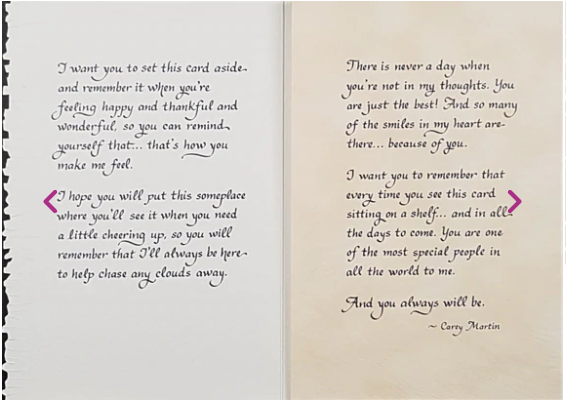 I want you to set this card aside
and remember it when you're
feeling happy and thankful and
wonderful, so you can remind
yourself that... that's how you
make me feel.
I hope you will put this someplace
where you'll see it when you need
a little cheering up, so you will
remember that I'll always be here
to help chase any clouds away.
There is never a day when
you're not in my thoughts. You
are just the best! And so many
of the smiles in my heart are
there... because of you.
I want you to remember that
every time you see this card
sitting on a shelf... and in all
the days to come. You are one
of the most special people in
all the world to me.
And you always will be.
~ Carey Martin